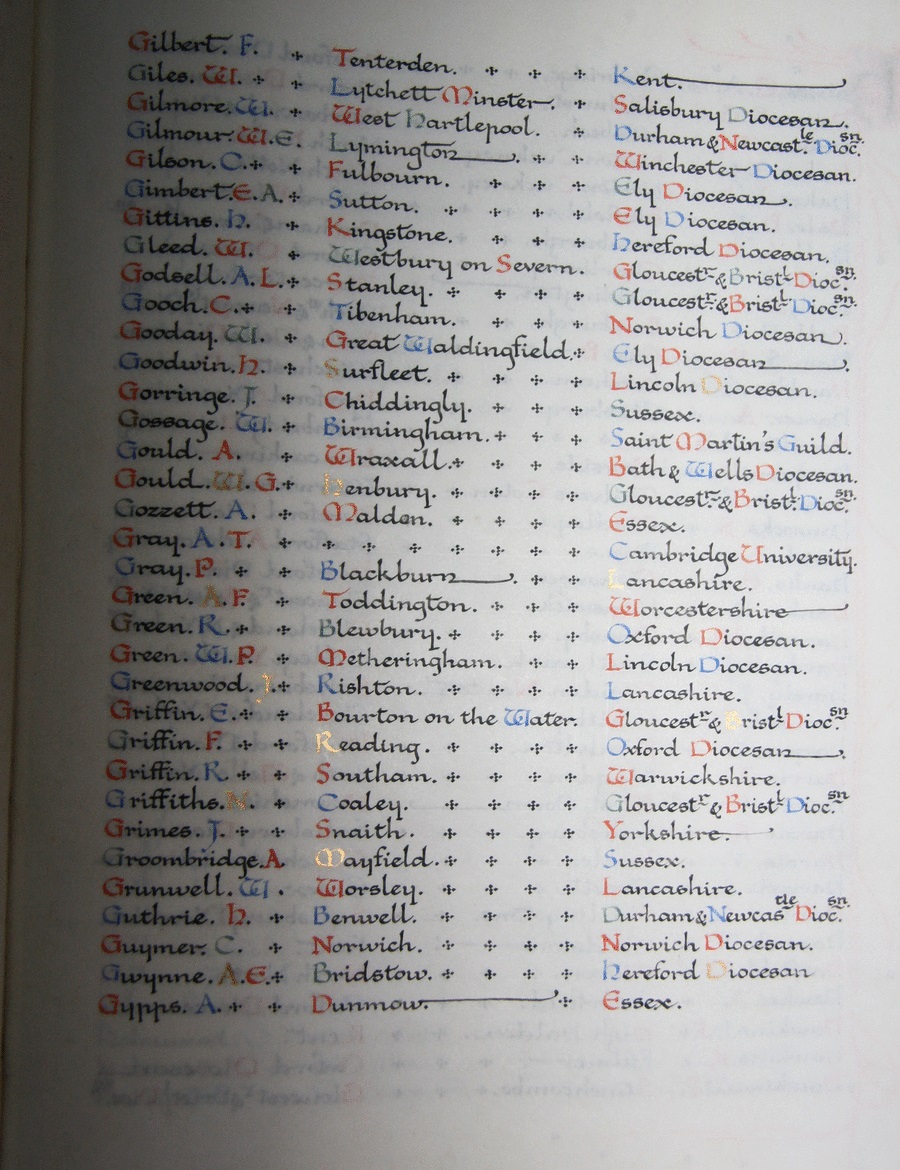 Gilbert. F. Tenterden. Kent.
Giles. W. Lytchett Minster. Salisbury Diocesan.
Gilmore. W. West Hartlepool. Durham & Newcast.le Dioc.sn
Gilmour. W.E. Lymington. Winchester Diocesan.
Gilson. C. Fulbourn. Ely Diocesan.
Gimbert. E.A. Sutton. Ely Diocesan.
Gittins. H. Kingstone. Hereford Diocesan.
Gleed. W. Westbury on Severn. Gloucestr. & Bristl. Dioc.sn
Godsell. A.L. Stanley. Gloucestr. & Bristl. Dioc.sn
Gooch. C. Tibenham. Norwich Diocesan.
Gooday. W. Great Waldingfield. Ely Diocesan.
Goodwin. H. Surfleet. Lincoln Diocesan.
Gorringe. J. Chiddingly. Sussex.
Gossage. W. Birmingham. Saint Martin's Guild.
Gould. A. Wraxall. Bath & Wells Diocesan.
Gould. W.G. Henbury. Gloucestr. & Bristl. Dioc.sn
Gozzett. A. Maldon. Essex.
Gray. A.T. Cambridge University.
Gray. P. Blackburn. Lancashire.
Green. A.F. Toddington. Worcestershire
Green. R. Blewbury. Oxford Diocesan.
Green. W.P. Metheringham. Lincoln Diocesan.
Greenwood. J. Rishton. Lancashire.
Griffin. E. Bourton on the Water. Gloucestr. & Bristl. Dioc.sn
Griffin. F. Reading. Oxford Diocesan.
Griffin. R. Southam. Warwickshire.
Griffiths. N. Coaley. Gloucestr. & Bristl. Dioc.sn
Grimes. J. Snaith. Yorkshire.
Groombridge. A. Mayfield. Sussex.
Grunwell. W. Worsley. Lancashire.
Guthrie. H. Benwell. Durham & Newcastle Dioc.sn
Guymer. C. Norwich. Norwich Diocesan.
Gwynne. A.E. Bridstow. Hereford Diocesan
Gypps. A. Dunmow. Essex.